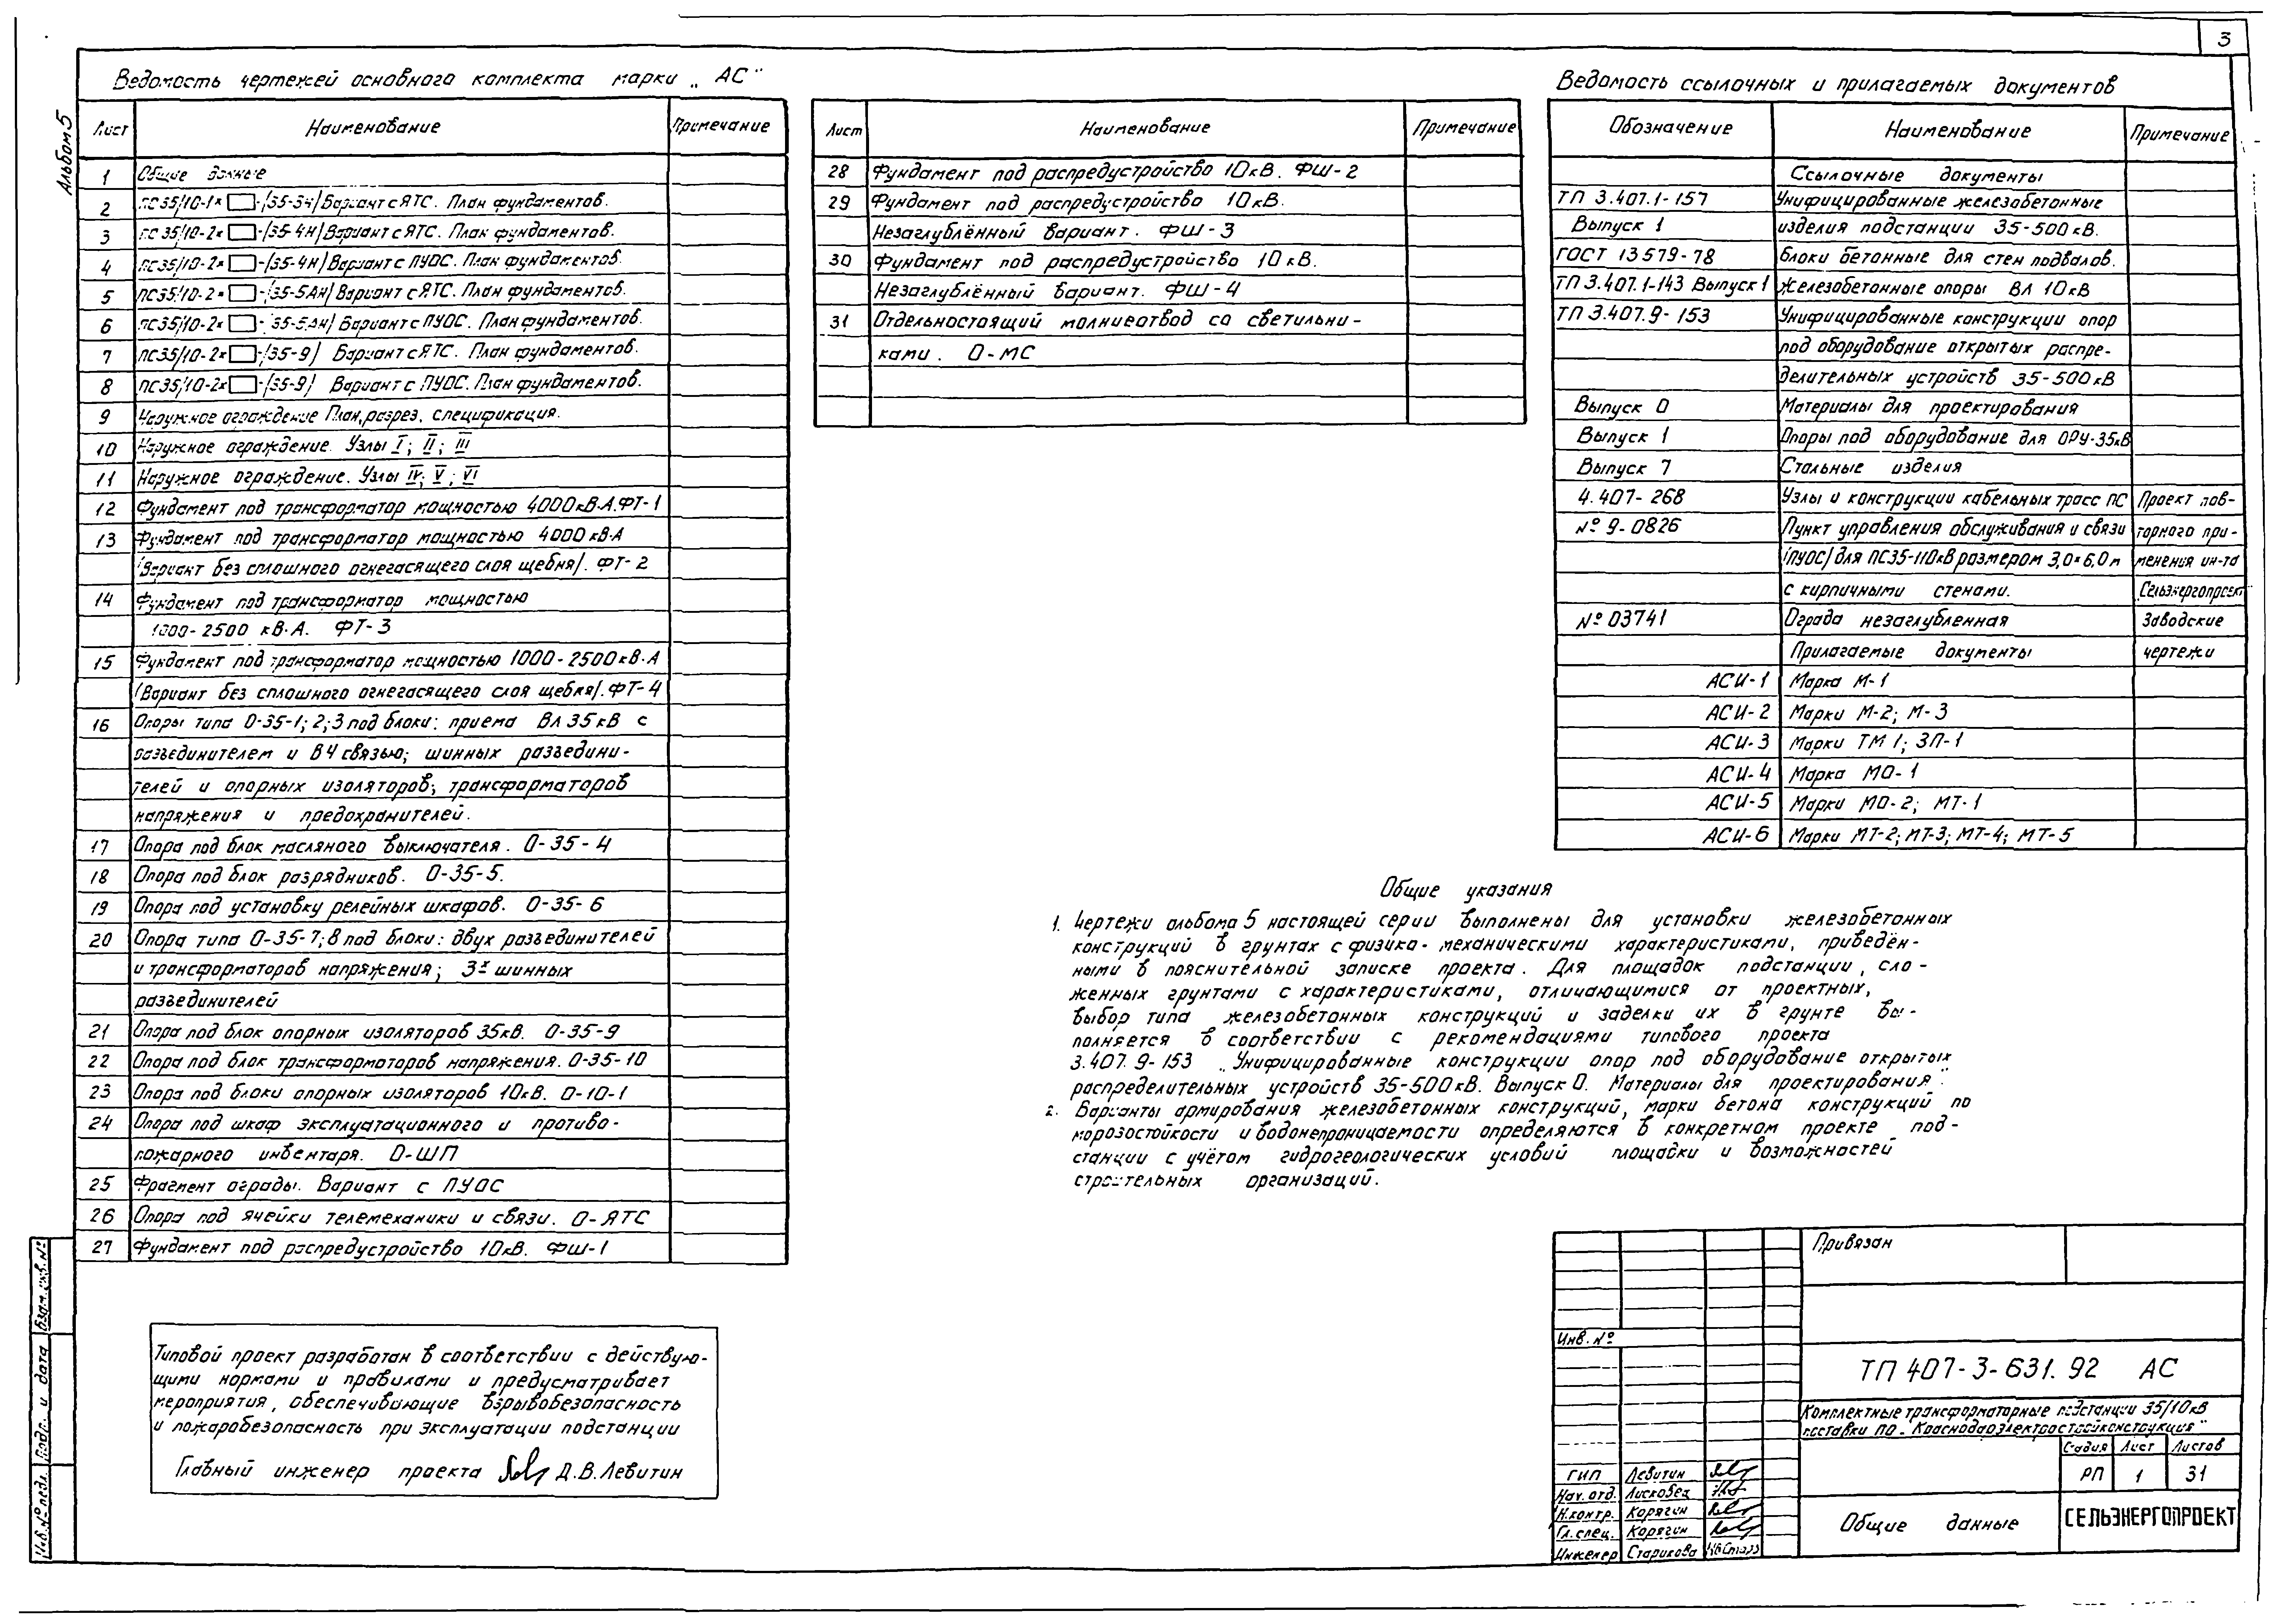 3
Альбом 5
Ведомость чертежей основного комплекта марки „АС"
Лист Наименование Примечание
1 Общие данные
2 ПС35/10-1×□-/35-3Н/ Вариант с ЯТС. План фундаментов.
3 ПС35/10-2×□-/35-4Н/ Вариант с ЯТС. План фундаментов.
4 ПС35/10-2×□-/35-4Н/ Вариант с ПУОС. План фундаментов.
5 ПС35/10-2×□-/35-5АН/ Вариант с ЯТС. План фундаментов.
6 ПС35/10-2×□-/35-5АН/ Вариант с ПУОС. План фундаментов.
7 ПС35/10-2×□-/35-9/ Вариант с ЯТС. План фундаментов.
8 ПС35/10-2×□-/35-9/ Вариант с ПУОС. План фундаментов.
9 Наружное ограждение План, разрез, спецификация.
10 Наружное ограждение. Узлы I; II; III
11 Наружное ограждение. Узлы IV; V; VI
12 Фундамент под трансформатор мощностью 4000кВ·А. ФТ-1
13 Фундамент под трансформатор мощностью 4000 кВ·А
/Вариант без сплошного огнегасящего слоя щебня/. ФТ-2
14 Фундамент под трансформатор мощностью
1000-2500 кВ·А. ФТ-3
15 Фундамент под трансформатор мощностью 1000-2500кВ·А
/Вариант без сплошного огнегасящего слоя щебня/. ФТ-4
16 Опоры типа О-35-1; 2; 3 под блоки: приема ВЛ 35кВ с
разъединителем и ВЧ связью; шинных разъедини-
телей и опорных изоляторов; трансформаторов
напряжения и предохранителей.
17 Опора под блок масляного выключателя. О-35-4
18 Опора под блок разрядников. О-35-5.
19 Опора под установку релейных шкафов. О-35-6
20 Опора типа О-35-7; 8 под блоки: двух разъединителей
и трансформаторов напряжения; 3х шинных
разъединителей
21 Опора под блок опорных изоляторов 35кВ. О-35-9
22 Опора под блок трансформаторов напряжения. О-35-10
23 Опора под блоки опорных изоляторов 10кВ. О-10-1
24 Опора под шкаф эксплуатационного и противо-
пожарного инвентаря. О-ШП
25 Фрагмент ограды. Вариант с ПУОС
26 Опора под ячейки телемеханики и связи. О-ЯТС
27 Фундамент под распредустройство 10кВ. ФШ-1
Лист Наименование Примечание
28 Фундамент под распредустройство 10кВ. ФШ-2
29 Фундамент под распредустройство 10кВ.
Незаглублённый вариант. ФШ-3
30 Фундамент под распредустройство 10кВ.
Незаглублённый вариант. ФШ-4
31 Отдельностоящий молниеотвод со светильни-
ками. О-МС
Ведомость ссылочных и прилагаемых документов
Обозначение Наименование Примечание
Ссылочные документы
ТП 3.407.1-157 Унифицированные железобетонные
Выпуск 1 изделия подстанции 35-500кВ.
ГОСТ 13579-78 Блоки бетонные для стен подвалов.
ТП 3.407.1-143 Выпуск 1 Железобетонные опоры ВЛ 10кВ
ТП 3.407.9-153 Унифицированные конструкции опор
под оборудование открытых распре-
делительных устройств 35-500кВ
Выпуск 0 Материалы для проектирования
Выпуск 1 Опоры под оборудование для ОРУ-35кВ
Выпуск 7 Стальные изделия
4.407-268 Узлы и конструкции кабельных трасс ПС Проект пов-
№ 9-0826 Пункт управления обслуживания и связи торного при-
/ПУОС/ для ПС35-110кВ размером 3,0×6,0м менения ин-та
с кирпичными стенами. Сельэнергопроект
№ 03741 Ограда незаглубленная Заводские
Прилагаемые документы чертежи
АСИ-1 Марка М-1
АСИ-2 Марки М-2; М-3
АСИ-3 Марки ТМ1; ЗП-1
АСИ-4 Марка МО-1
АСИ-5 Марки МО-2; МТ-1
АСИ-6 Марки МТ-2; МТ-3; МТ-4; МТ-5
Общие указания
1. Чертежи альбома 5 настоящей серии выполнены для установки железобетонных
конструкций в грунтах с физико-механическими характеристиками, приведён-
ными в пояснительной записке проекта. Для площадок подстанции, сло-
женных грунтами с характеристиками, отличающимися от проектных,
выбор типа железобетонных конструкций и заделки их в грунте вы-
полняется в соответствии с рекомендациями типового проекта
3.407.9-153 „Унифицированные конструкции опор под оборудование открытых
распределительных устройств 35-500кВ. Выпуск 0. Материалы для проектирования".
2. Варианты армирования железобетонных конструкций, марки бетона конструкций по
морозостойкости и водонепроницаемости определяются в конкретном проекте под-
станции с учётом гидрогеологических условий площадки и возможностей
строительных организаций.
Типовой проект разработан в соответствии с действую-
щими нормами и правилами и предусматривает
мероприятия, обеспечивающие взрывобезопасность
и пожаробезопасность при эксплуатации подстанции
Главный инженер проекта Д.В. Левитин
Взам. инв. №
Подп. и дата
Инв. № подл.
Привязан
Инв. №
ТП 407-3-631.92 АС
Комплектные трансформаторные подстанции 35/10кВ
поставки ПО „Краснодарэлектростройконструкция"
Стадия Лист Листов
РП 1 31
ГИП Левитин
Нач. отд. Лисковец
Н.контр. Корягин
Гл. спец. Корягин
Инженер Старикова
Общие данные
СЕЛЬЭНЕРГОПРОЕКТ